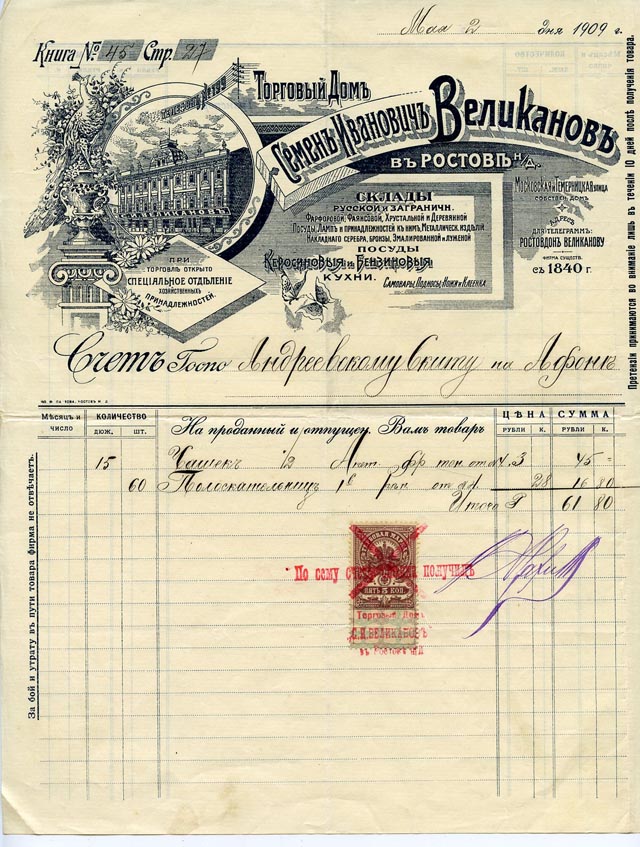 Мая 2 дня 1909 г.
Книга № 45 Стр. 27
Торговый Домъ
Семенъ Ивановичъ Великановъ
въ Ростовѣ н/Д.
Московская и Темерницкая улица
собствен. домъ.
Адресъ
для телеграммъ:
Ростовдонъ Великанову
фирма существ.
съ 1840 г.
Склады
русской и заграничн.
Фарфоровой, Фаянсовой, Хрустальной и Деревянной
Посуды, Лампъ и принадлежностей къ нимъ, Металлическ. издѣлій
Накладного серебра, бронзы, Эмалированной и луженой
посуды
Керосиновыя и Бензиновыя
кухни.
Самовары, Подносы, Ножи и Клеенка.
Великановъ
При
торговлѣ открыто
Спеціальное отдѣленіе
хозяйственныхъ
принадлежностей.
Счетъ Госпо Андреевскому Скиту на Афонѣ
Мѣсяцъ и число
Количество
дюж. шт.
На проданный и отпущен. Вамъ товаръ
Цѣна
рубли к.
Сумма
рубли к.
15 Чашекъ 3 45 =
60 Полоскательницъ 28 16 80
Итого Р 61 80
По сему счету получилъ
пять 5 коп.
Торговый Домъ
С.И. Великановъ
въ Ростовѣ н/Д
За бой и утрату въ пути товара фирма не отвѣчаетъ.
Претензіи принимаются во вниманіе лишь въ теченіи 10 дней послѣ полученія товара.